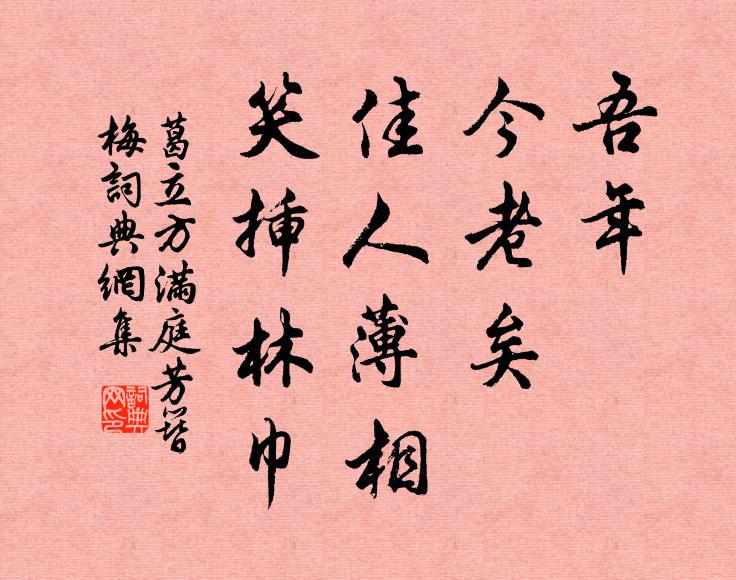 吾年
今老矣
佳人薄相
笑插林巾
葛立方滿庭芳簪
梅詞典網集
詞典网印